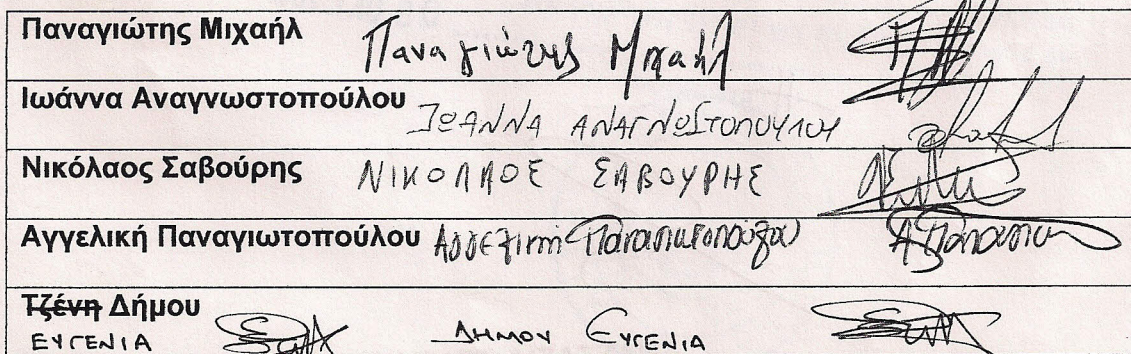 Παναγιώτης Μιχαήλ Παναγιώτης Μιχαήλ
Ιωάννα Αναγνωστοπούλου ΙΩΑΝΝΑ ΑΝΑΓΝΩΣΤΟΠΟΥΛΟΥ
Νικόλαος Σαβούρης ΝΙΚΟΛΑΟΣ ΣΑΒΟΥΡΗΣ
Αγγελική Παναγιωτοπούλου Αγγελική Παναγιωτοπούλου
Τζένη Δήμου
ΕΥΓΕΝΙΑ ΔΗΜΟΥ ΕΥΓΕΝΙΑ